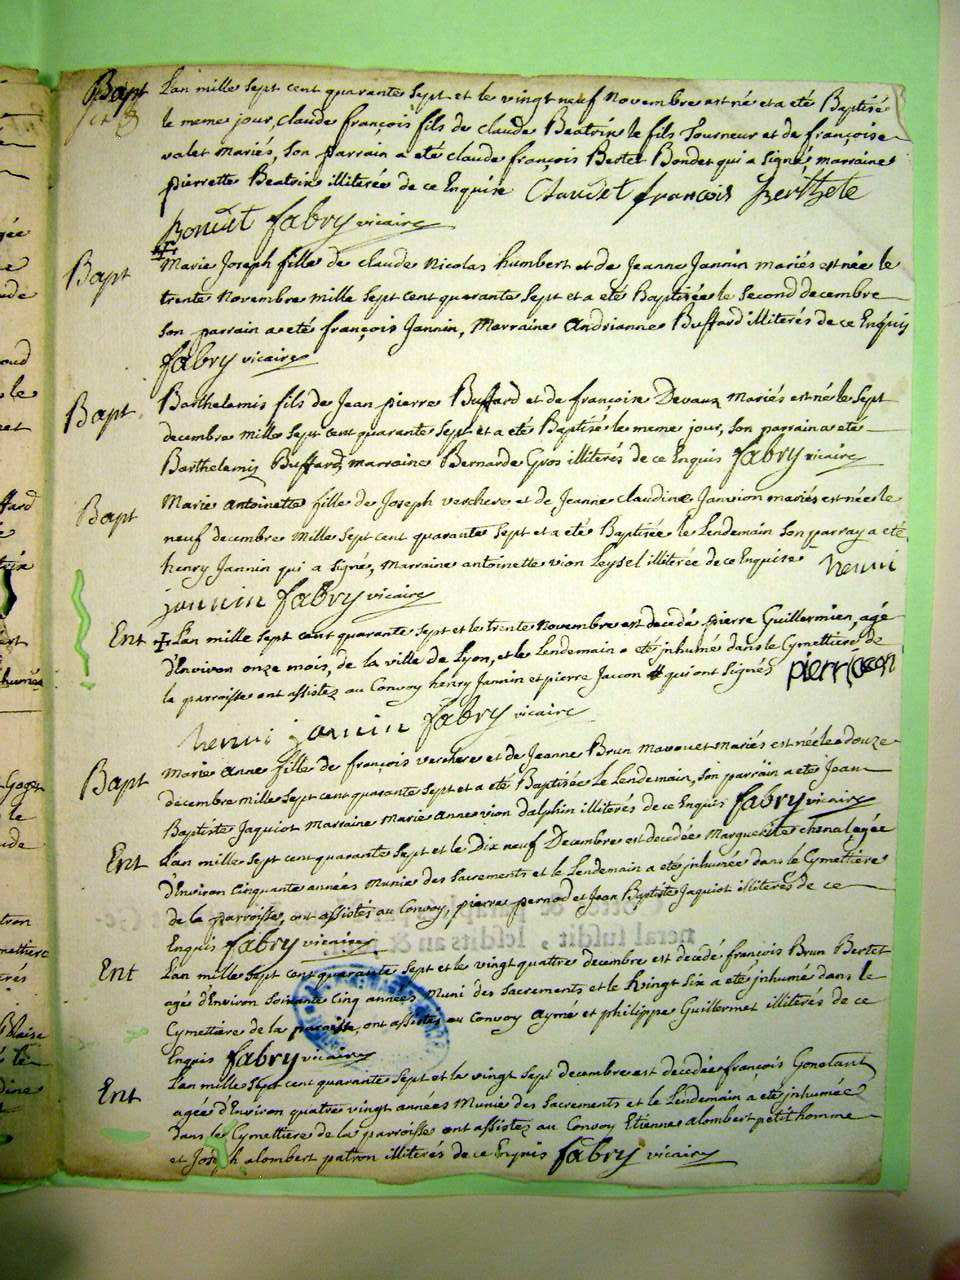 Bapt L'an mille sept cent quarante sept et le vingt neuf novembre est né et a eté Baptisé
le meme jour, claude françois fils de claude Beatrix le fils Tourneur et de françoise
valet mariés, son parrain a eté claude françois Bertet Bondet qui a signé, marraine
pierrette Beatrix illiterée de ce Enquise Claudet françois Berthete
Bondet fabry vicaire
Bapt Marie Joseph fille de claude Nicolas humbert et de Jeanne Jannin mariés est née le
trente Novembre mille sept cent quarante sept et a eté Baptisée le second decembre
son parrain a eté françois Jannin, Marraine Andrianne Buffard illiterés de ce Enquis
fabry vicaire
Bapt Barthelemis fils de Jean pierre Buffard et de françoise Devaux mariés est né le sept
decembre mille sept cent quarante sept et a eté Baptisé le meme jour, son parrain a eté
Barthelemis Buffard, marraine Bernarde Gros illiterés de ce Enquis fabry vicaire
Bapt Marie antoinette fille de Joseph verchere et de Jeanne claudine mariés est née le
neuf decembre mille sept cent quarante sept et a eté Baptisée le Lendemain son parray a eté
henry Jannin qui a signé, Marraine antoinette vion illiterée de ce Enquise henri
jannin fabry vicaire
Ent L'an mille sept cent quarante sept et le trente novembre est decedé pierre Guillermien, agé
d'Environ onze mois, de la ville de Lyon, et le Lendemain a eté jnhumé dans le Cymettiere de
la parroisse ont assistez au Convoy henry Jannin et pierre Jacon qui ont signés pierrjacon
henri jannin fabry vicaire
Bapt Marie anne fille de françois verchere et de Jeanne Brun mariés est née le douze
decembre mille sept cent quarante sept et a eté Baptisée le Lendemain, son parrain a eté Jean
Baptiste Jaquiot Marraine Marie anne vion dalphin illiterés de ce Enquis fabry vicaire
Ent L'an mille sept cent quarante sept et le Dix neuf Decembre est decedée Marguerite chenal, agée
d'Environ Cinquante années Munie des Sacrements et le Lendemain a eté jnhumée dans le Cymettiere
de la parroisse, ont assistés au Convoy, pierre pernod et Jean Baptiste Jaquiot illiterés de ce
Enquis fabry vicaire
Ent L'an mille sept cent quarante sept et le vingt quattre decembre est decedé françois Brun Bertet
agé d'Environ soixante Cinq années Muni des Sacrements et le vingt six a eté jnhumé dans le
Cymettiere de la paroisse, ont assistés au Convoy Aymé et philippe Guillermet illiterés de ce
Enquis fabry vicaire
Ent L'an mille sept cent quarante sept et la vingt sept decembre est decedée françois
agée d'Environ quatre vingt années Munie des Sacrements et le Lendemain a eté jnhumée
dans le Cymettiere de la parroisse ont assistez au Convoy Etienne alombert petit homme
et Joseph alombert patron illiterés de ce Enquis fabry vicaire